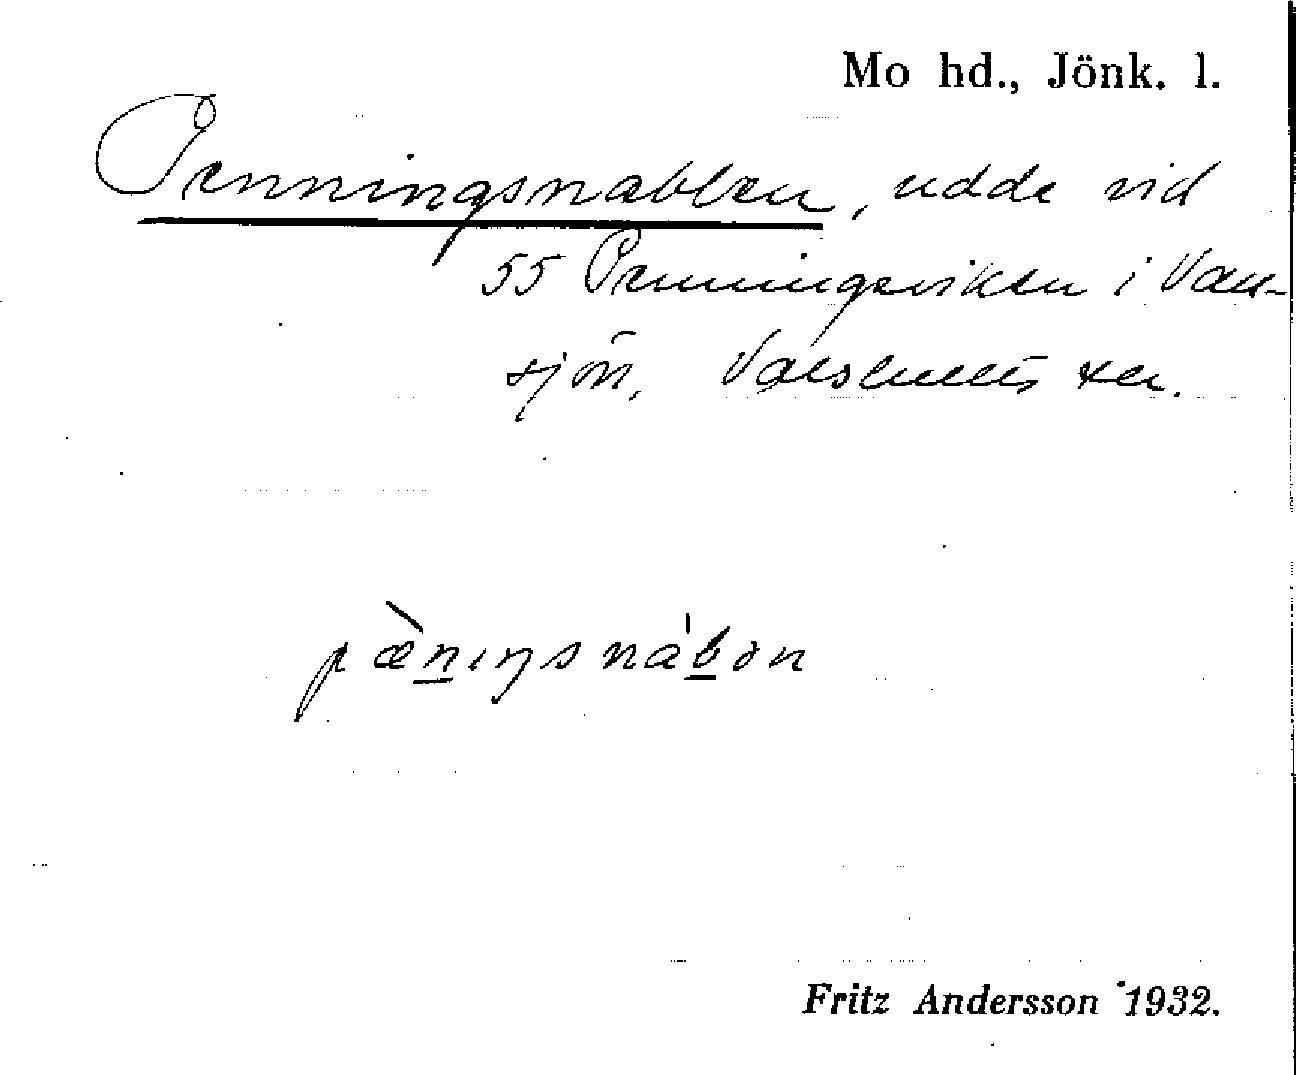 Mo hd., Jönk. l.
Penningsnabben, udde vid
55 Penningeviken i Vall-
sjön, Valshults
pæ̀nıŋsnábən
Fritz Andersson 1932.